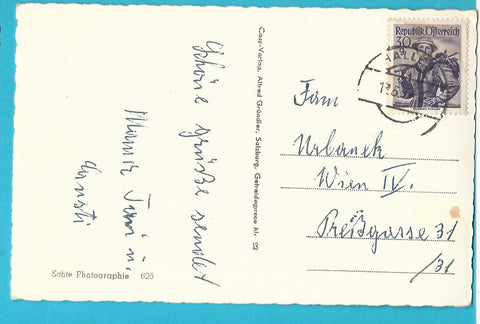 Schöne Grüße sendet
Mama
Echte Photographie 625
Cosy-Verlag, Alfred Gründler, Salzburg, Getreidegasse Nr. 22
Republik Österreich
30
HALLE
Urbanek
Wien IV.
Preßgasse 31
/31